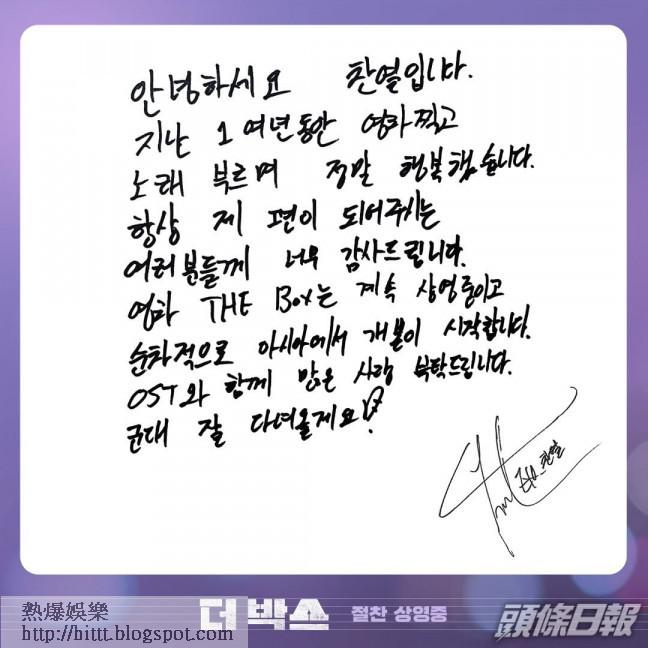 안녕하세요 찬열입니다.
지난 1여년동안 영화찍고
노래 부르며 정말 행복했습니다.
항상 제 편이 되어주시는
여러분들께 너무 감사드립니다.
영화 THE BOX는 계속 상영중이고
순차적으로 아시아에서 개봉이 시작합니다.
OST와 함께 많은 사랑 부탁드립니다.
군대 잘 다녀올게요♡!
EXO_찬열
더 박스 절찬 상영중
熱爆娛樂
http://hittt.blogspot.com/
頭條日報